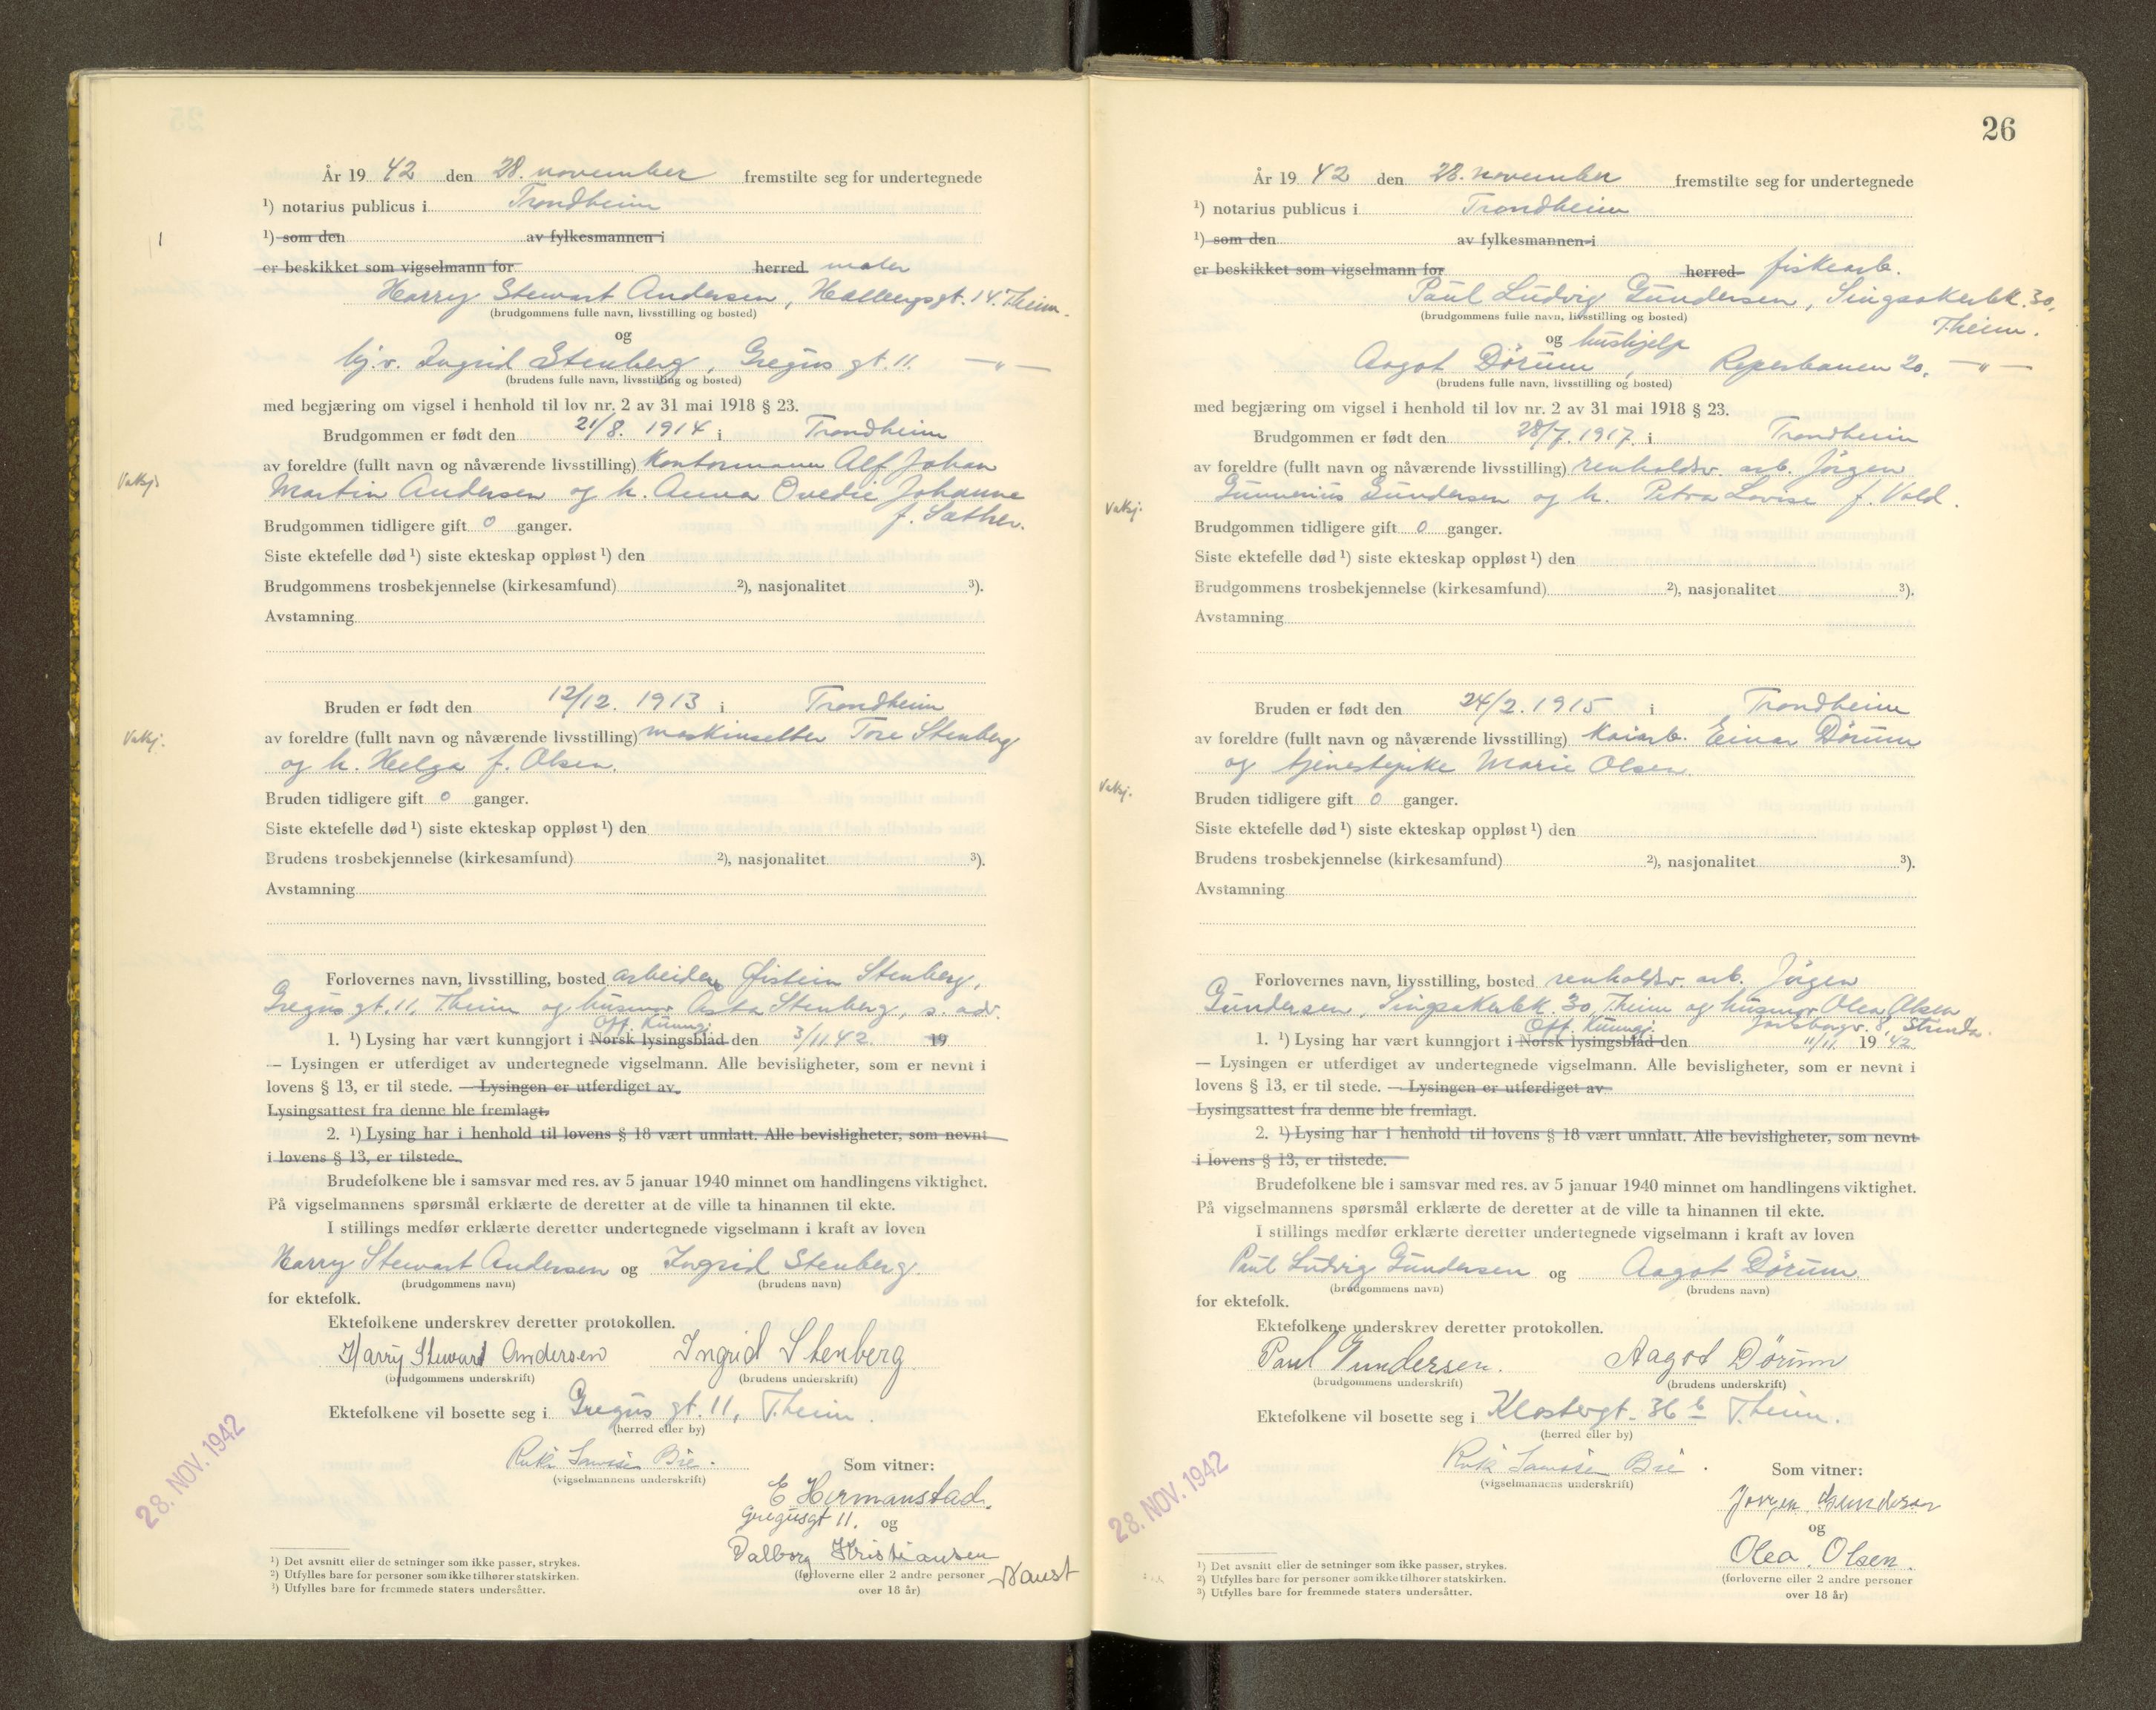 År 19 42 den 28. november fremstilte seg for undertegnede
¹) notarius publicus i Trondheim
¹) som den av fylkesmannen i
er beskikket som vigselmann for herred maler
Harry Stewart Andersen, Hallbergsgt. 14. Theim.
(brudgommens fulle navn, livsstilling og bosted)
og
hj.v. Ingrid Stenberg, Gregus gt. 11. — " —
(brudens fulle navn, livsstilling og bosted)
med begjæring om vigsel i henhold til lov nr. 2 av 31 mai 1918 § 23.
Brudgommen er født den 21/8. 1914 i Trondheim
av foreldre (fullt navn og nåværende livsstilling) Kontormann Alf Johan
Martin Andersen og h. Anna Ovedie Johanne
f. Sæther.
Brudgommen tidligere gift 0 ganger.
Siste ektefelle død ¹) siste ekteskap oppløst ¹) den
Brudgommens trosbekjennelse (kirkesamfund) ²), nasjonalitet ³).
Avstamning
Bruden er født den 12/12. 1913 i Trondheim
av foreldre (fullt navn og nåværende livsstilling) maskinsetter Tore Stenberg
og h. Helga f. Olsen.
Bruden tidligere gift 0 ganger.
Siste ektefelle død ¹) siste ekteskap oppløst ¹) den
Brudens trosbekjennelse (kirkesamfund) ²), nasjonalitet ³).
Avstamning
Forlovernes navn, livsstilling, bosted arbeider Øistein Stenberg,
Gregus gt. 11, Theim og husmor Asta Stenberg, s. adr.
Off. Kunngj.
1. ¹) Lysing har vært kunngjort i Norsk lysingsblad den 3/11 42. 19
— Lysingen er utferdiget av undertegnede vigselmann. Alle bevisligheter, som er nevnt i
lovens § 13, er til stede. — Lysingen er utferdiget av
Lysingsattest fra denne ble fremlagt.
2. ¹) Lysing har i henhold til lovens § 18 vært unnlatt. Alle bevisligheter, som nevnt
i lovens § 13, er tilstede.
Brudefolkene ble i samsvar med res. av 5 januar 1940 minnet om handlingens viktighet.
På vigselmannens spørsmål erklærte de deretter at de ville ta hinannen til ekte.
I stillings medfør erklærte deretter undertegnede vigselmann i kraft av loven
Harry Stewart Andersen og Ingrid Stenberg.
(brudgommens navn) (brudens navn)
for ektefolk.
Ektefolkene underskrev deretter protokollen.
Harry Stewart Andersen Ingrid Stenberg
(brudgommens underskrift) (brudens underskrift)
Ektefolkene vil bosette seg i Gregus gt. 11, T.heim.
(herred eller by)
28. NOV. 1942
Som vitner:
(vigselmannens underskrift)
E Hermanstad.
Gregusgt 11. og
Valborg Kristiansen
Naust
(forloverne eller 2 andre personer
over 18 år)
¹) Det avsnitt eller de setninger som ikke passer, strykes.
²) Utfylles bare for personer som ikke tilhører statskirken.
³) Utfylles bare for fremmede staters undersåtter.
26
År 19 42 den 28. november fremstilte seg for undertegnede
¹) notarius publicus i Trondheim
¹) som den av fylkesmannen i
er beskikket som vigselmann for herred fiskearb.
Paul Ludvig Gundersen, Singsakerbk. 30,
Theim.
(brudgommens fulle navn, livsstilling og bosted)
og hushjelp
Aagot Dørum, Reperbanen 20, — " —
(brudens fulle navn, livsstilling og bosted)
med begjæring om vigsel i henhold til lov nr. 2 av 31 mai 1918 § 23.
Brudgommen er født den 28/7. 1917. i Trondheim
av foreldre (fullt navn og nåværende livsstilling) renholdsv. arb. Jörgen
Gunnerius Gundersen og h. Petra Lovise f. Vold.
Brudgommen tidligere gift 0 ganger.
Siste ektefelle død ¹) siste ekteskap oppløst ¹) den
Brudgommens trosbekjennelse (kirkesamfund) ²), nasjonalitet ³).
Avstamning
Bruden er født den 24/2. 1915 i Trondheim
av foreldre (fullt navn og nåværende livsstilling) Kaiarb. Einar Dørum
og tjenestepike Marie Olsen.
Bruden tidligere gift 0 ganger.
Siste ektefelle død ¹) siste ekteskap oppløst ¹) den
Brudens trosbekjennelse (kirkesamfund) ²), nasjonalitet ³).
Avstamning
Forlovernes navn, livsstilling, bosted renholdsv. arb. Jörgen
Gundersen, Singsakerbk. 30, Theim og husmor Olea Olsen
Off. Kunngj. Jarlsborgv. 8, Strinda.
1. ¹) Lysing har vært kunngjort i Norsk lysingsblad den 11/11. 19 42
— Lysingen er utferdiget av undertegnede vigselmann. Alle bevisligheter, som er nevnt i
lovens § 13, er til stede. — Lysingen er utferdiget av
Lysingsattest fra denne ble fremlagt.
2. ¹) Lysing har i henhold til lovens § 18 vært unnlatt. Alle bevisligheter, som nevnt
i lovens § 13, er tilstede.
Brudefolkene ble i samsvar med res. av 5 januar 1940 minnet om handlingens viktighet.
På vigselmannens spørsmål erklærte de deretter at de ville ta hinannen til ekte.
I stillings medfør erklærte deretter undertegnede vigselmann i kraft av loven
Paul Ludvig Gundersen og Aagot Dørum.
(brudgommens navn) (brudens navn)
for ektefolk.
Ektefolkene underskrev deretter protokollen.
Paul Gundersen. Aagot Dörum
(brudgommens underskrift) (brudens underskrift)
Ektefolkene vil bosette seg i Klostergt. 36 b T.heim.
(herred eller by)
28. NOV. 1942
Som vitner:
(vigselmannens underskrift)
Jørgen Gundersen
og
Olea Olsen.
(forloverne eller 2 andre personer
over 18 år)
¹) Det avsnitt eller de setninger som ikke passer, strykes.
²) Utfylles bare for personer som ikke tilhører statskirken.
³) Utfylles bare for fremmede staters undersåtter.